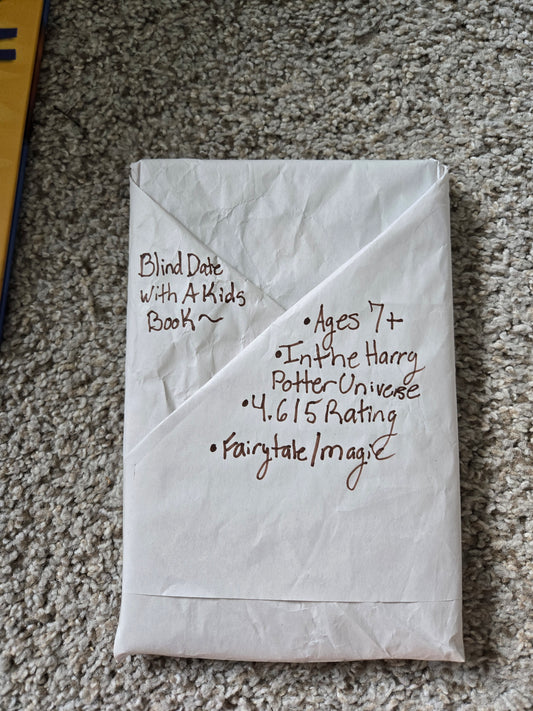 Blind Date
With A Kids
Book~
• Ages 7+
• In the Harry
Potter Universe
• 4.6/5 Rating
• Fairytale/magic